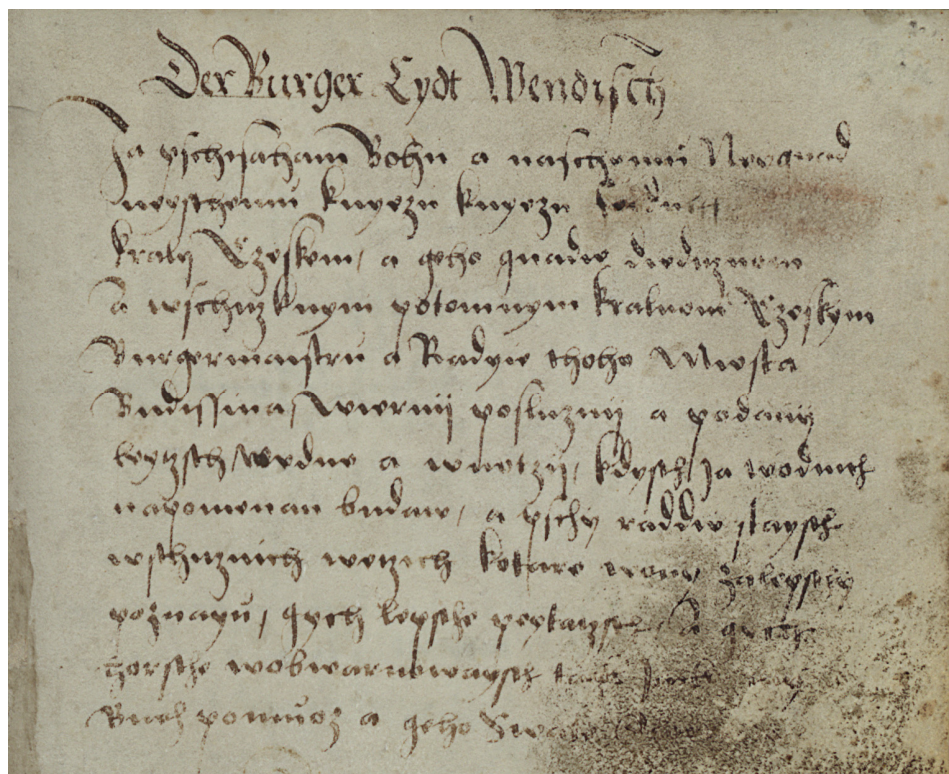 Der Burger Eydt Wendisch
Ja pschisaham Bohu a naschemu Neygnad
neyschemu knyezu knyezu
kralij Czeskem, a geho gnadie diediznem
a wschitzknym potomnym kraluom Czeskym
Burgermaistru a Radyie thoho Miesta
Budissina, wiernij posluznij a podanij
beytzsch, wedne a wnotzij, kdysch Ja wodnich
napomenan budaw, a pschy raddie staysch
wschitznich wietzich kotare
poznayu, gych lepsche peytatzsch a gych
horsche wobwarnowaysch
Buch pomuoz a geho